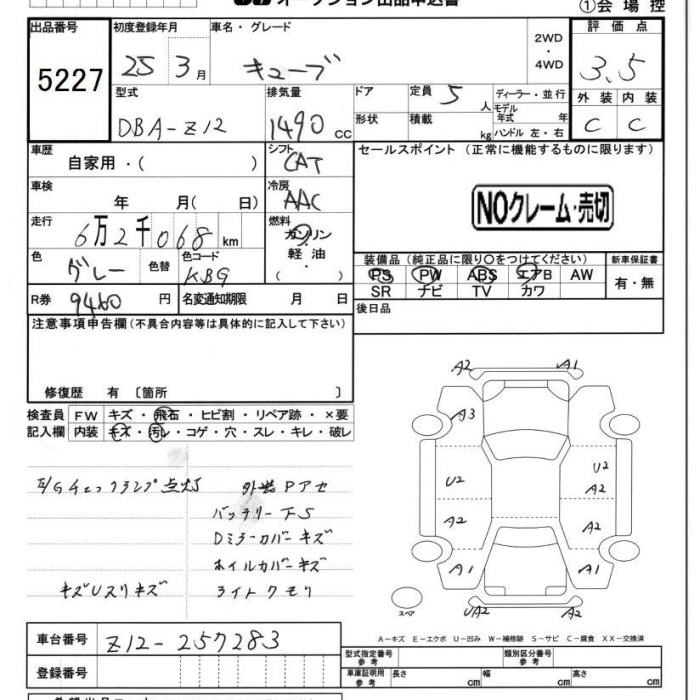 オークション出品申込書
①会場控
出品番号 初度登録年月 車名・グレード 2WD・4WD 評価点
5227 25 3月 キューブ 3.5
型式 排気量 ドア 定員 5人 ディーラー・並行 外装 内装
DBA-Z12 1490cc 形状 積載 kg モデル年式 年 ハンドル 左・右 C C
車歴 自家用・( ) シフト CAT セールスポイント(正常に機能するものに限ります)
車検 年 月( 日) 冷房 AAC
NOクレーム・売切
走行 6万2千068km 燃料 ガソリン 軽油 ・( )
色 グレー 色替 色コード KBG
装備品(純正品に限り○をつけてください) 新車保証書
PS PW ABS エアB AW 有・無
SR ナビ TV カワ
R券 9460円 名変通知期限 月 日
後日品
注意事項申告欄(不具合内容等は具体的に記入して下さい)
修復歴 有 〔箇所 〕
検査員記入欄 FW キズ・飛石・ヒビ割・リペア跡・×要
内装 キズ・汚レ・コゲ・穴・スレ・キレ・破レ
E/Gチェックランプ点灯 外装Pアセ
バッテリー不S
Dミラーカバーキズ
ホイルカバーキズ
キズUスリキズ ライトクモリ
A2 A1
A3
U2 U2
A2
A2 A2
A1 A1
UA2 A2
スペア
A-キズ E-エクボ U-凹み W-補修跡 S-サビ C-腐食 XX-交換済
車台番号 Z12-257283
登録番号
型式指定番号 参考 類別区分番号 参考
車庫証明用 参考 長さ cm 幅 cm 高さ cm